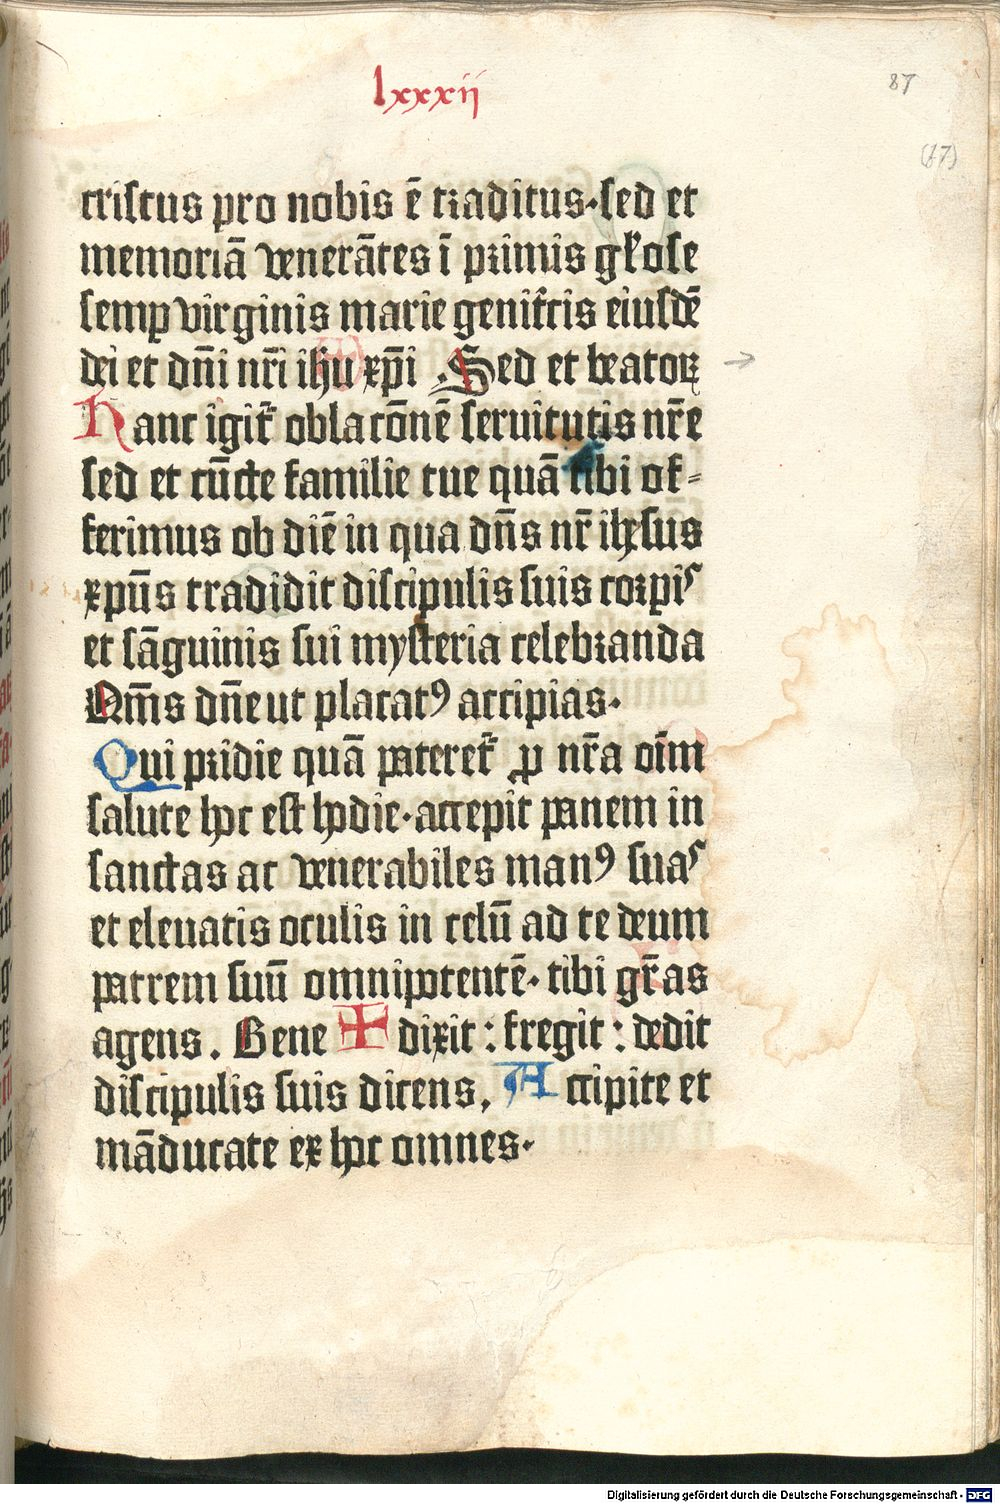 lxxxii
87
(67)
cristus pro nobis ē traditus · sed et
memoriā venerātes ī primis gl'ose
semꝑ virginis marie genitͥcis eiusdē
dei et dn̄i nr̄i ih̄u xp̄i . Sed et beatoꝝ
Hanc igit᷑ oblacōnē seruitutis nr̄e
sed et cūcte familie tue quā tibi of-
ferimus ob diē in qua dn̄s nr̄ ihesus
xpūs tradidit discipulis suis corpis
et sāguinis sui mysteria celebranda
Qm̄s dn̄e ut placatꝰ accipias ·
Qui pridie quā pateret᷑ ꝓ nr̄a oīm
salute hoc est hodie · accepit panem in
sanctas ac venerabiles manꝰ suas
et eleuatis oculis in celū ad te deum
patrem suū omnipotentē · tibi gr̄as
agens . Bene ✠ dixit : fregit : dedit
discipulis suis dicens, Accipite et
māducate ex hoc omnes ·
Digitalisierung gefördert durch die Deutsche Forschungsgemeinschaft - DFG